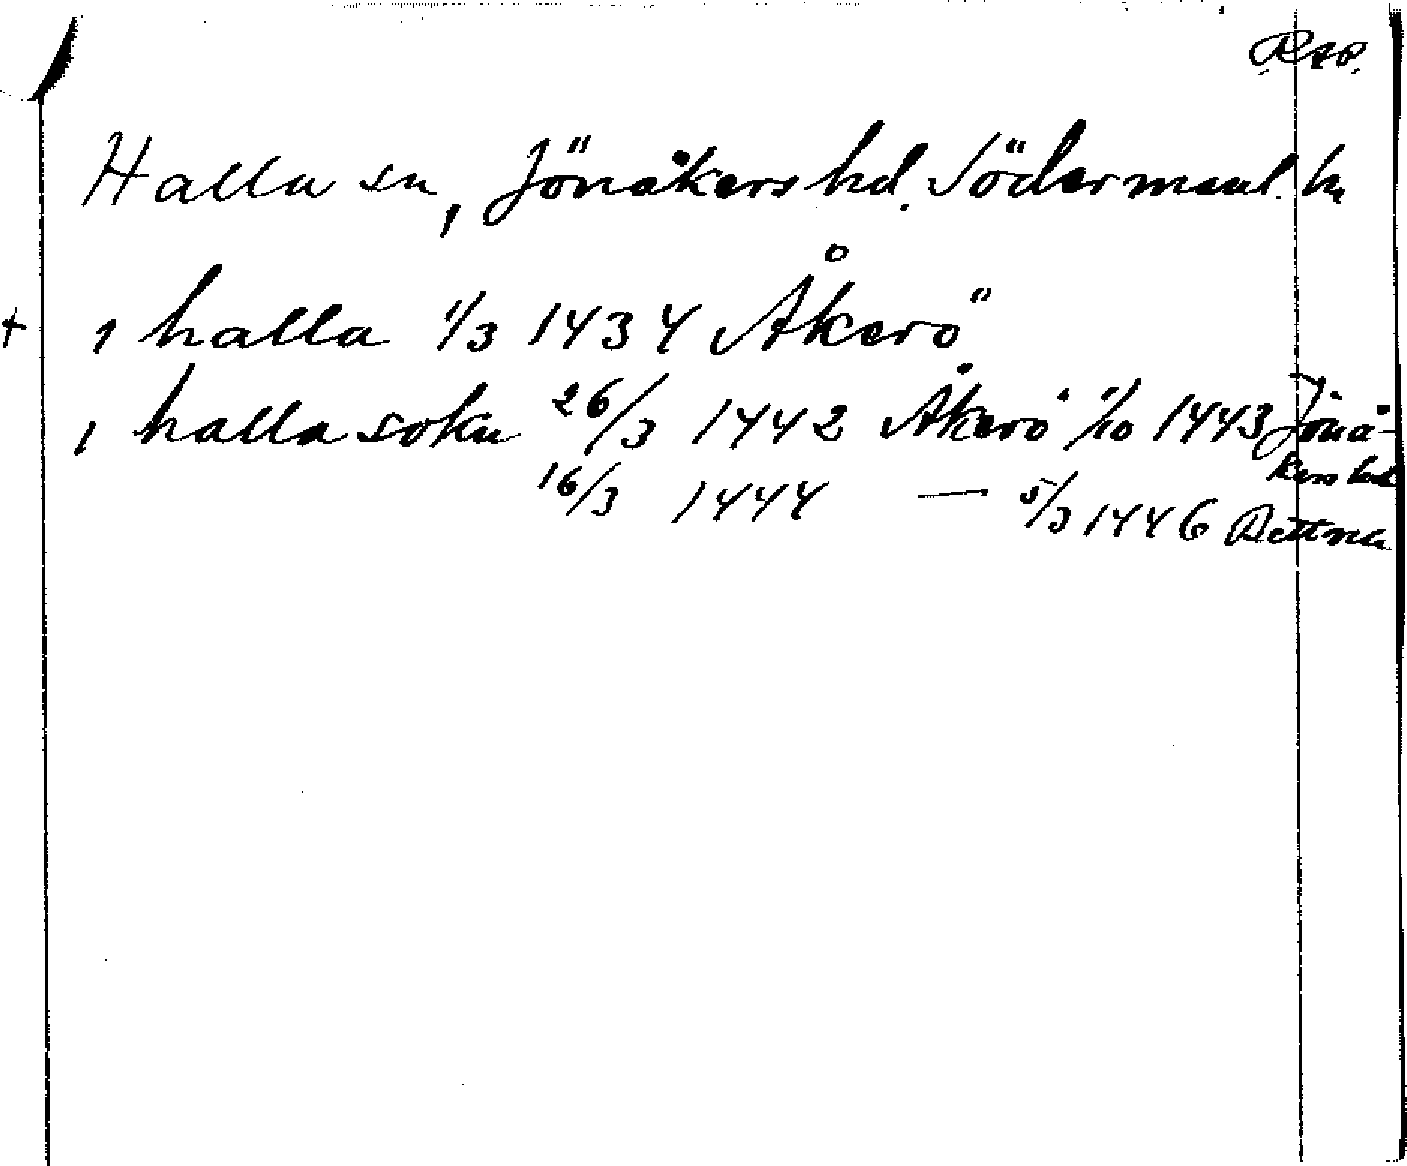 RAP.
Halla sn, Jönåkers hd. Södermanl. ln
+ ı halla 1/3 1434 Åkerö
ı halla sokn 26/3 1442 Åkerö 1/10 1443 Jönå-
kers hd
16/3 1444 — 5/3 1446 Bettna